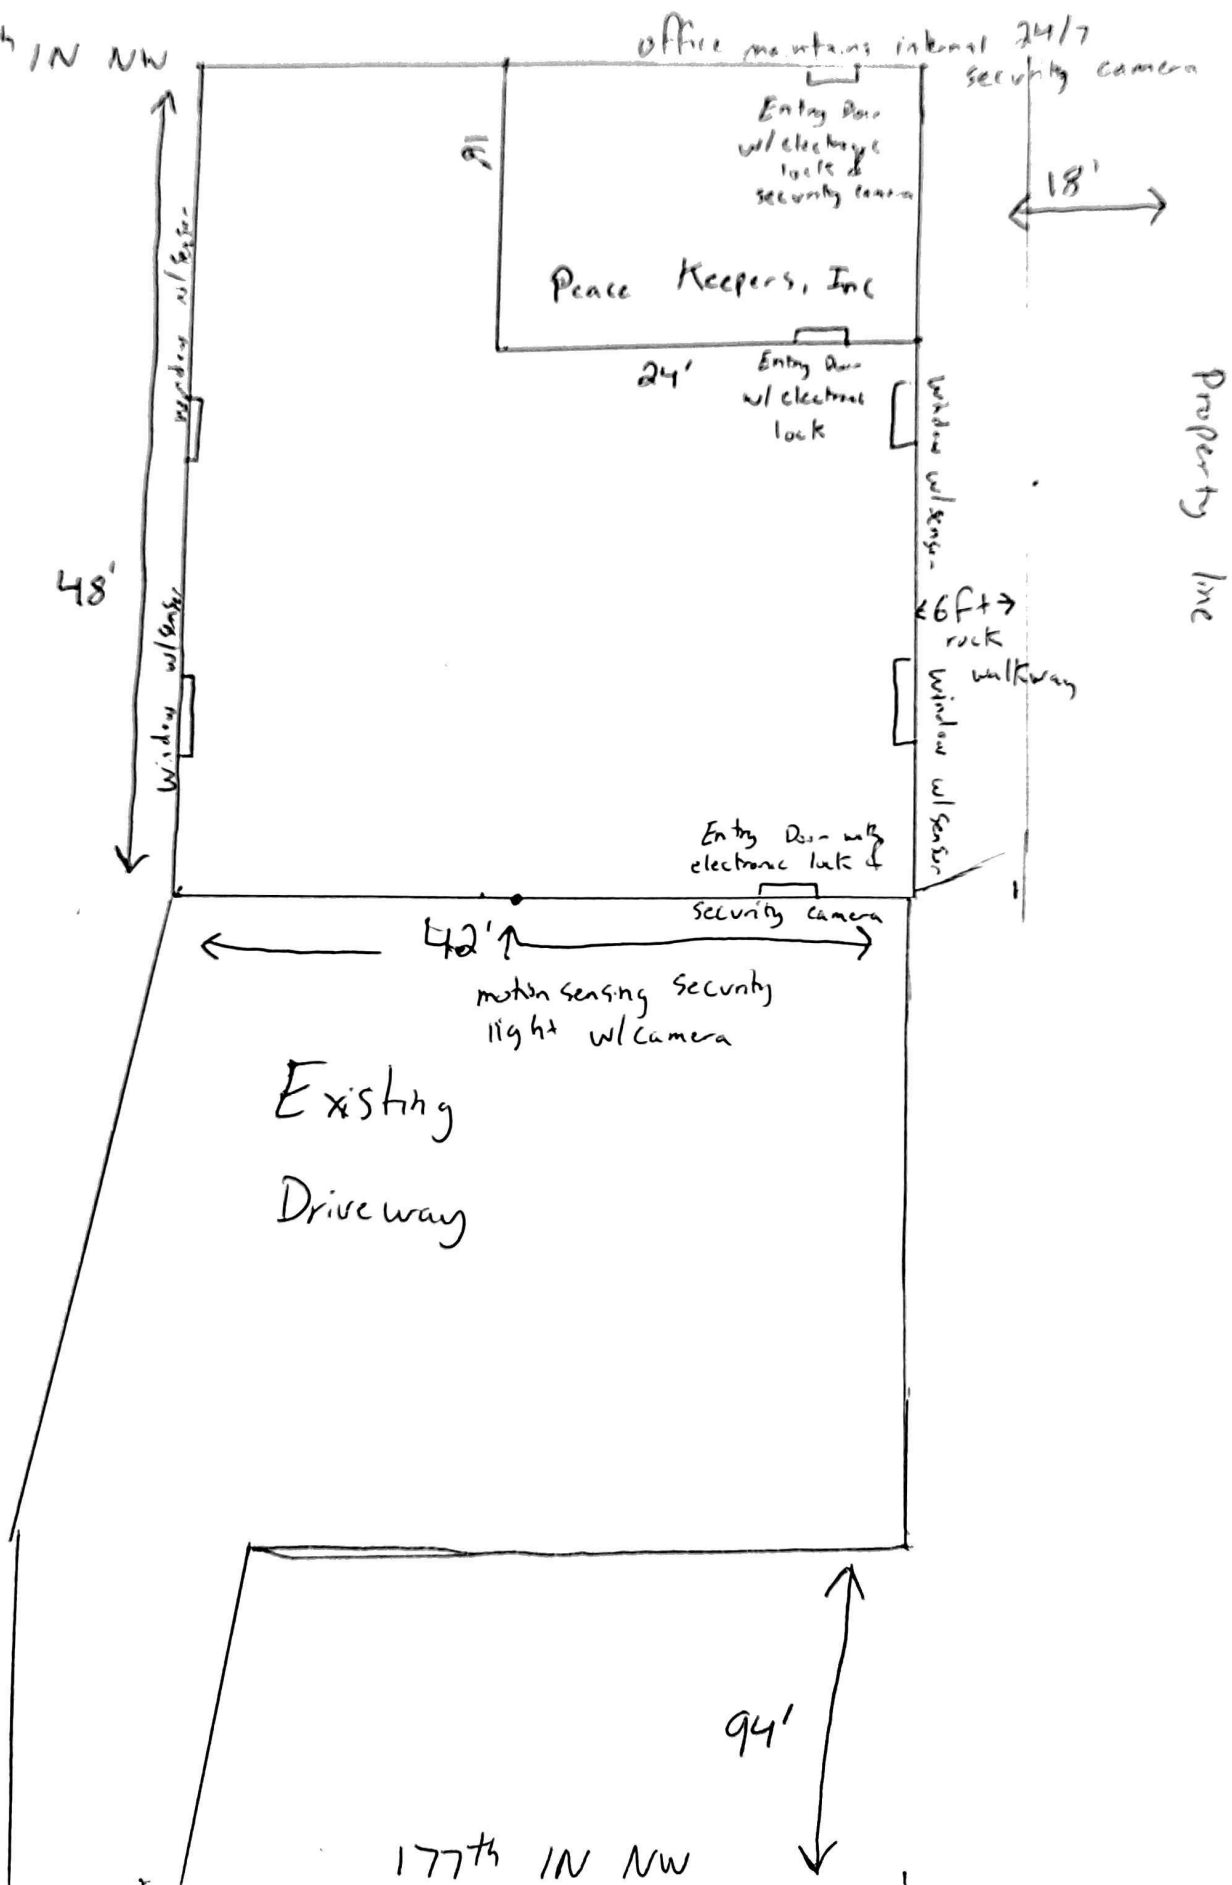 IN NW
office maintains internal 24/7
security camera
Entry Door
w/ electronic
lock &
security camera
18'
16'
Peace Keepers, Inc
24'
Entry Door
w/ electronic
lock
window w/sensor
window w/sensor
window w/sensor
window w/sensor
Property line
48'
6ft
rock
walkway
Entry Door with
electronic lock &
security camera
42'
motion sensing security
light w/camera
Existing
Driveway
94'
177th IN NW